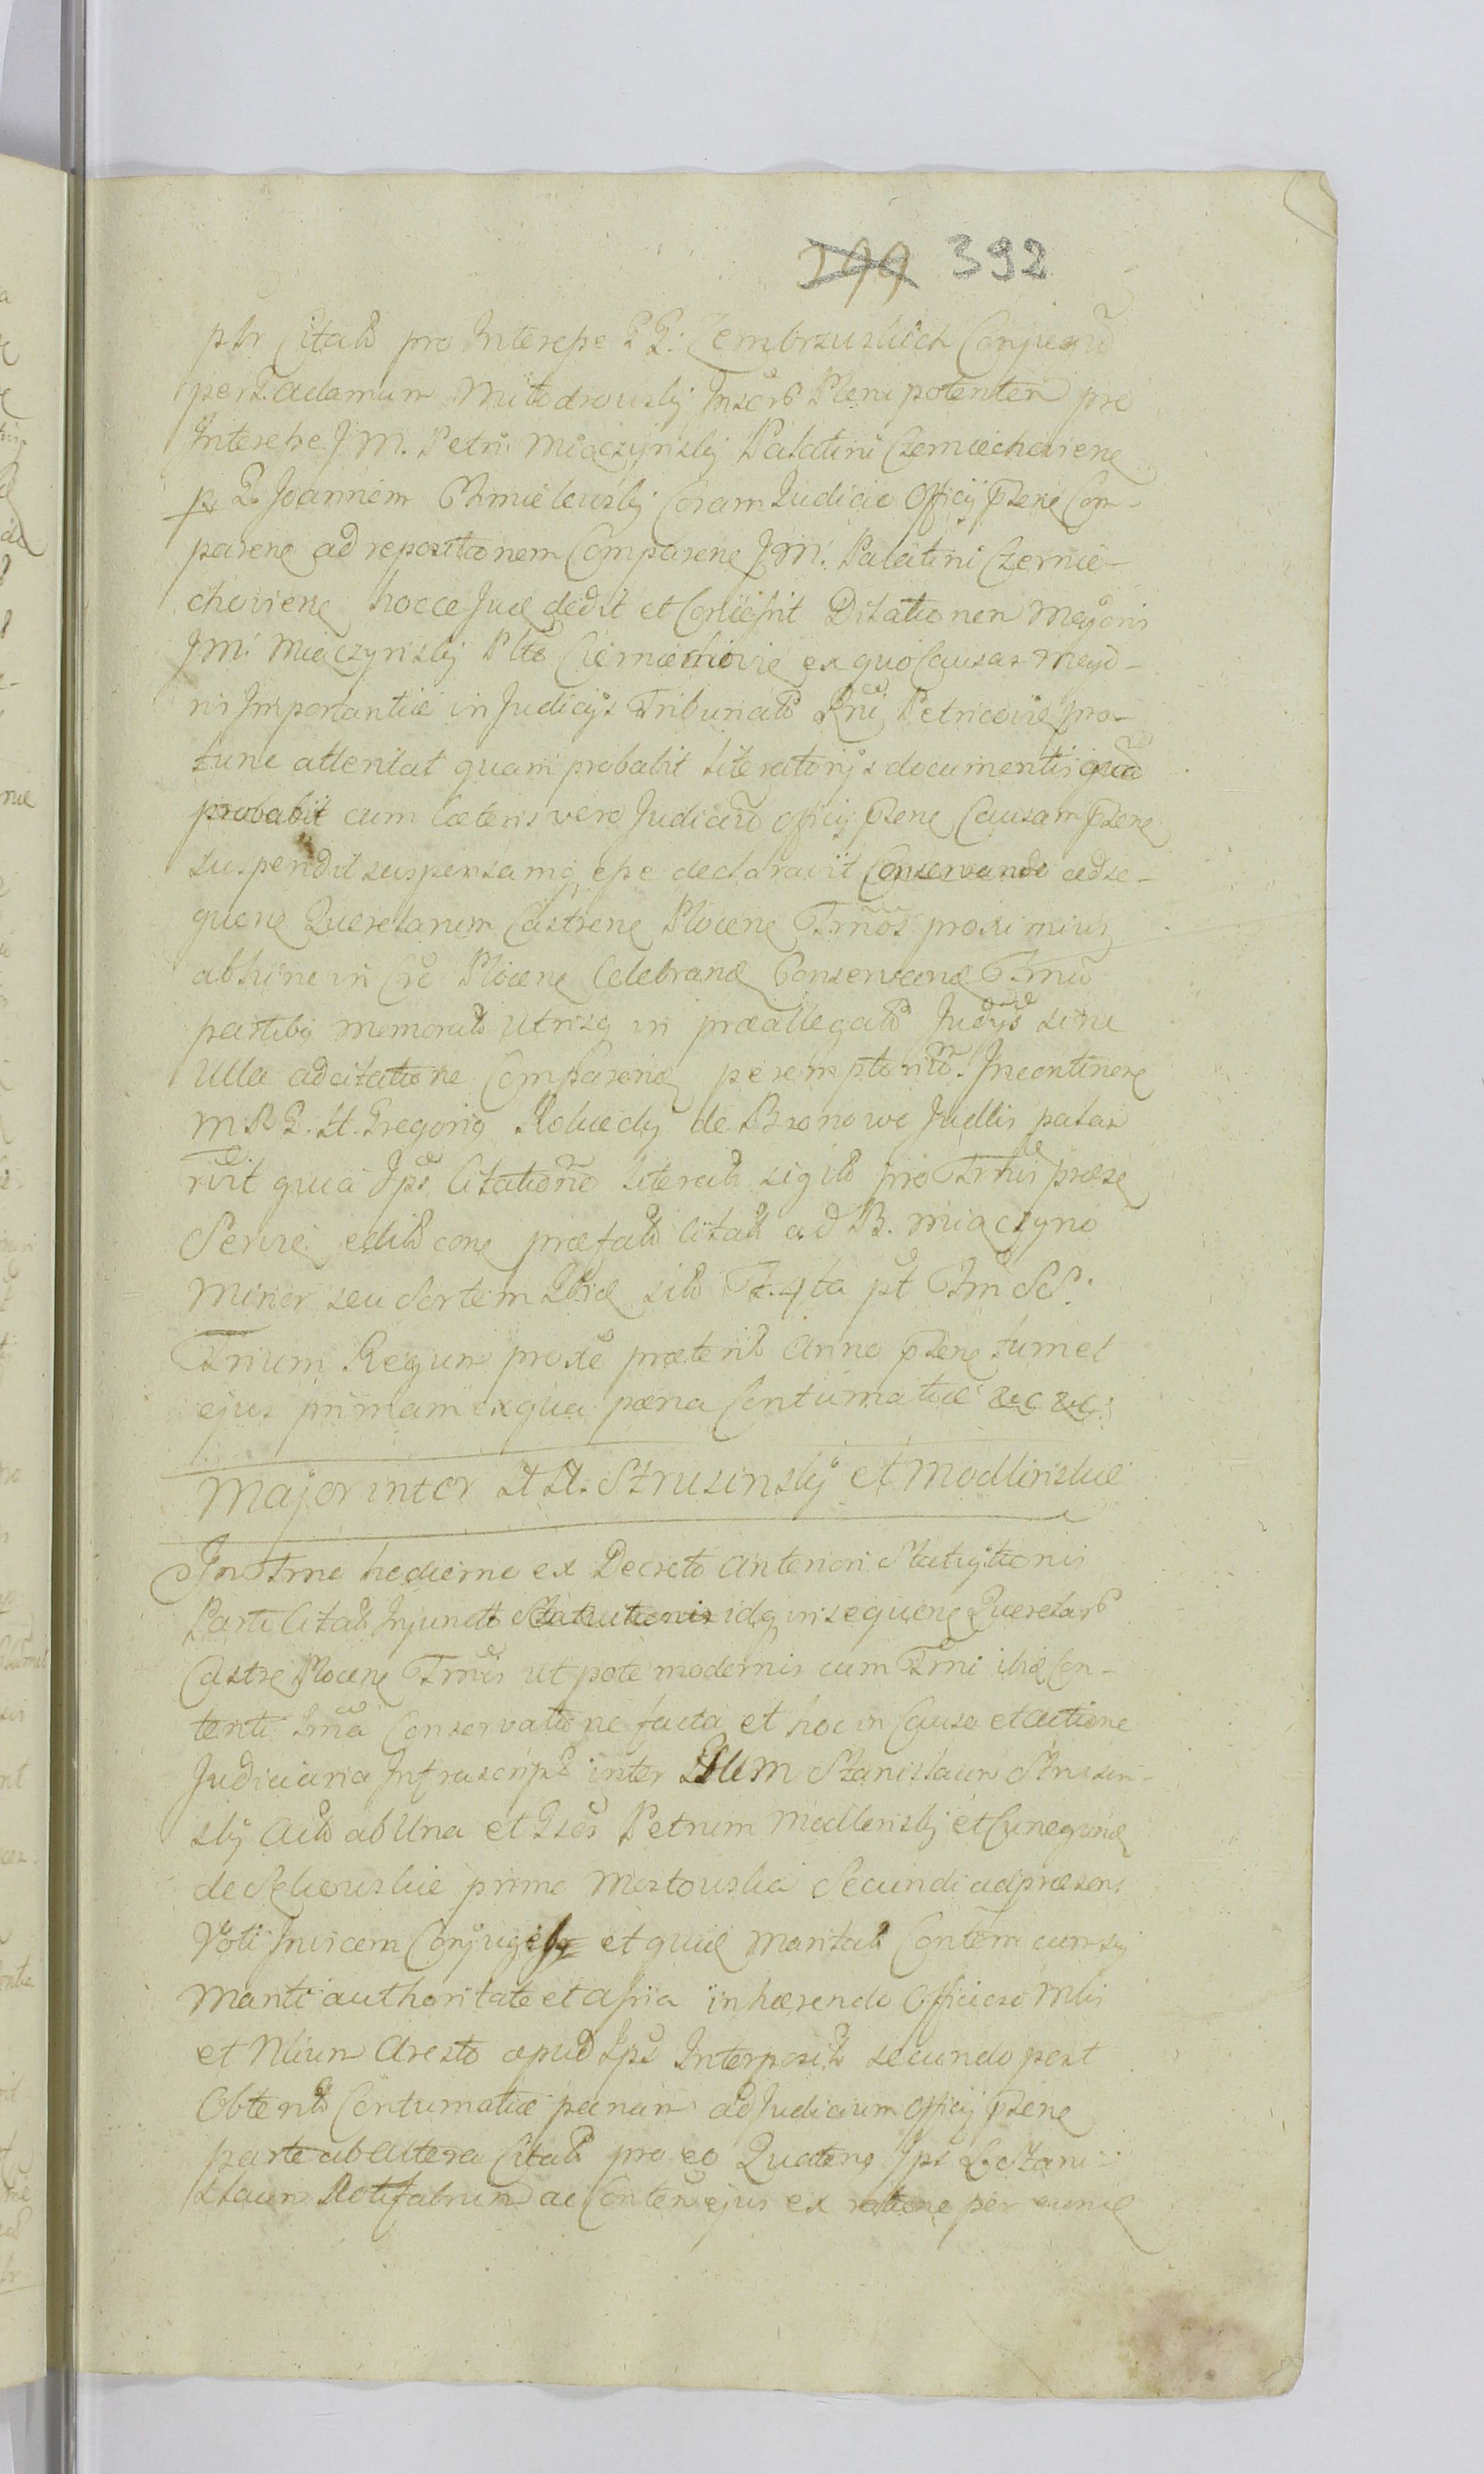 199 392
ptr Citatt pro Interesse GG. Zembrzuskich Conjugũ
per G. Adamum Miłodrowskÿ Inscrb Plenipotenten pro
Interesse J M. Petri Miączynskÿ Palatini Czerniechoviene
p G. Joannem Chmielewskÿ Coram Judicio Officÿ Psene Com-
parene ad repositionem Comparene J M. Palatini Czernie-
choviene hocce Jud dedit et Concessit Dilationem Majoris
J M. Miączynskÿ Pltõ Czerniechovie ex quo Causas Majo-
ris Importantiæ in Judicÿs Tribunatt Rni Petricovie pro-
tunc attentat quam probabit Literatorÿs documentis quã
probabit cum Cæteris vero Judiciũ Officÿ Psene Causam Psene
suspendit suspensamq esse declaravit Conservando ad se-
quene Querelarum Castrene Plocene Trmõs proximius
abhinc in Cro Plocene Celebrand Conservand Trmũ
partibq memoratt Utrisq in præallegatt Judÿs sine
Ulla adcitatione Comparend peremptoriũ. Incontinene
M R G. St. Gregorig Kobiedÿ de Bronowo Judlis palam
rvit quia Ips Citationõ literatt sigill pro Trmis præse
Servi edill cone præfatt Citatt ad B. Miączyno
Minor seu Sortem Ibid sitt F. 4ta pt Fm SS.
Trium Regum proxe præterit Anno Psene tum et
ejus primam ex qua pæna Contumatiæ &c &c.
Major inter St St. Strusinskÿ et Modlinskie
In Trmo hodierno ex Decreto Anteriori Statuÿtionis
Parti Citatt Injunctt Statutionis idq in sequene Querelarb
Castre Plocene Trmis ut pote modernis cum Trmi ibid Con-
tenti Trmã Conservatione facta et hoc in Causa et actione
Judiciaria Infrascript inter Glum Stanislaum Strusin-
skÿ Actt ab Una et Gsos Petrum Modlenskÿ et Cunegund
de Schouskie primo Mostowska Secundi ad præsens
Voti Invicem Conjugesq et quid Maritatt Contem cum sÿ
Mariti authoritate et assia inhærendo Officioso Mlis
et Nliun Aresto apud Ips Interposit secundo post
Obtentt Contumatiæ pænam ad Judicium Officÿ Psene
parte ab altera Citatt pro eo Quateng Ips G. Stani-
slaum Rotifabrum ac Contem ejus ex ratione per eund